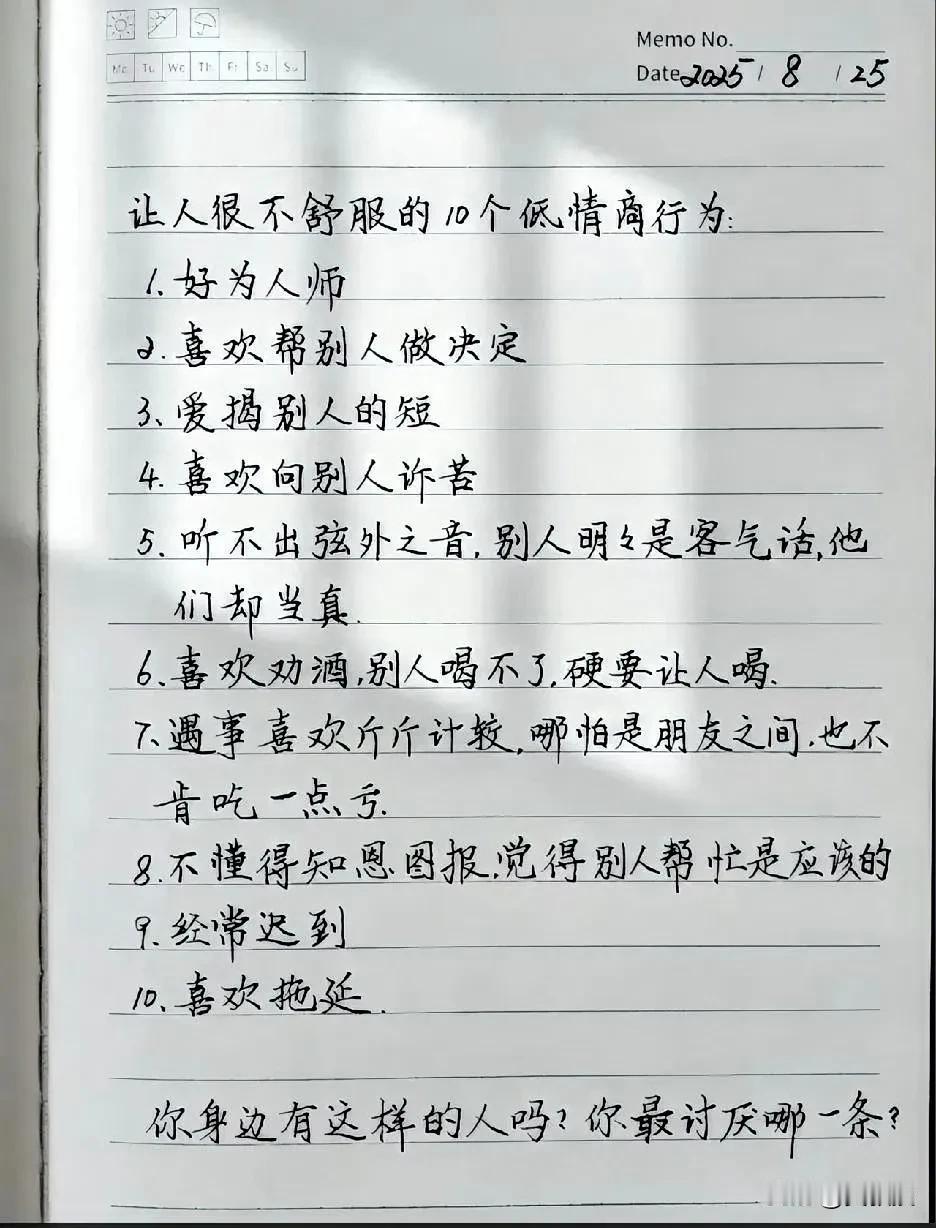 Mo Tu We Th Fr Sa Su
Memo No.
Date 2025 / 8 / 25
让人很不舒服的10个低情商行为:
1. 好为人师
2. 喜欢帮别人做决定
3、爱揭别人的短
4. 喜欢向别人诉苦
5. 听不出弦外之音,别人明々是客气话,他
们却当真.
6、喜欢劝酒,别人喝不了,硬要让人喝.
7、遇事喜欢斤斤计较,哪怕是朋友之间,也不
肯吃一点亏.
8.不懂得知恩图报,觉得别人帮忙是应该的
9. 经常迟到
10、喜欢拖延.
你身边有这样的人吗?你最讨厌哪一条?